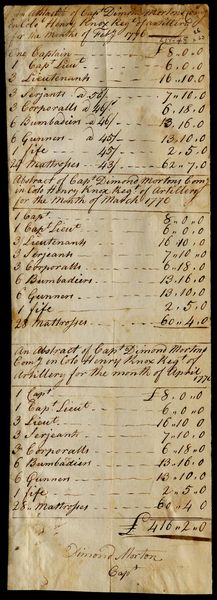 An Abstract of Capt Dimond Mortons Comy
in Colo Henry Knox Regt of Artillery
for the Month of Feby 1776
One Captain £8..0..0
1 Capt Lieut 6..0..0
3 Lieutenants 16..10..0
3 Serjants a 50/ 7..10..0
3 Corporalls a 46/ 6..18..0
6 Bumbadiers a 46/ 13..16..0
6 Gunners a 45/ 13..10..0
1 fife 45/ 2..5..0
Mattrosses 43/ 62..7..0
Abstract of Capt Dimond Mortons Comy
in Colo Henry Knox Regt of Artillery
for the Month of March 1776
1 Capt 8..0..0
1 Capt Lieut 6..0..0
3 Lieutenants 16..10..0
3 Serjeants 7..10..0
3 Corporalls 6..18..0
6 Bumbadiers 13..16..0
6 Gunners 13..10..0
1 fife 2..5..0
28 Mattrosses 60..4..0
An Abstract of Capt Dimond Mortons
Comy in Colo Henry Knox Regt of
Artillery for the month of April
1776
1 Capt £8..0..0
1 Capt Lieut 6..0..0
3 Lieut 16..10..0
3 Serjeants 7..10..0
3 Corporalls 6..18..0
6 Bumbadiers 13..16..0
6 Gunners 13..10..0
1 fife 2..5..0
28 Mattrosses 60..4..0
£416..2..0
Dimond Morton
Capt